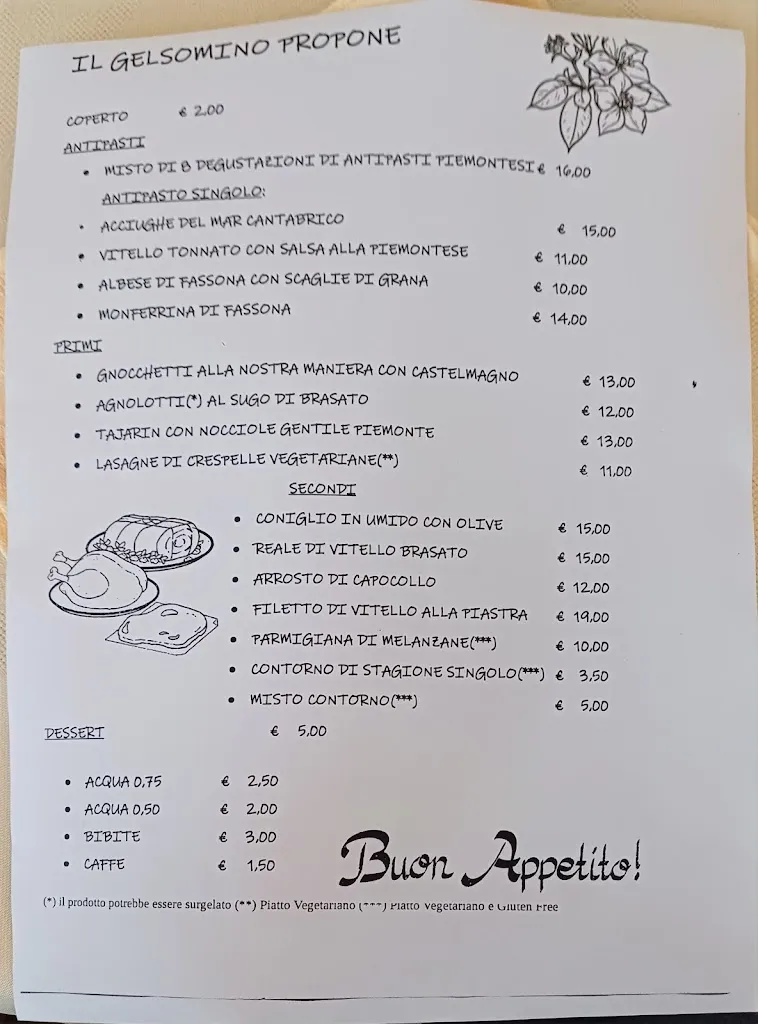 IL GELSOMINO PROPONE
COPERTO € 2,00
ANTIPASTI
• MISTO DI 8 DEGUSTAZIONI DI ANTIPASTI PIEMONTESI € 16,00
ANTIPASTO SINGOLO:
• ACCIUGHE DEL MAR CANTABRICO € 15,00
• VITELLO TONNATO CON SALSA ALLA PIEMONTESE € 11,00
• ALBESE DI FASSONA CON SCAGLIE DI GRANA € 10,00
• MONFERRINA DI FASSONA € 14,00
PRIMI
• GNOCCHETTI ALLA NOSTRA MANIERA CON CASTELMAGNO € 13,00
• AGNOLOTTI(*) AL SUGO DI BRASATO € 12,00
• TAJARIN CON NOCCIOLE GENTILE PIEMONTE € 13,00
• LASAGNE DI CRESPELLE VEGETARIANE(**) € 11,00
SECONDI
• CONIGLIO IN UMIDO CON OLIVE € 15,00
• REALE DI VITELLO BRASATO € 15,00
• ARROSTO DI CAPOCOLLO € 12,00
• FILETTO DI VITELLO ALLA PIASTRA € 19,00
• PARMIGIANA DI MELANZANE(***) € 10,00
• CONTORNO DI STAGIONE SINGOLO(***) € 3,50
• MISTO CONTORNO(***) € 5,00
DESSERT € 5,00
• ACQUA 0,75 € 2,50
• ACQUA 0,50 € 2,00
• BIBITE € 3,00
• CAFFE € 1,50
Buon Appetito!
(*) il prodotto potrebbe essere surgelato (**) Piatto Vegetariano (***) Piatto Vegetariano e Gluten Free